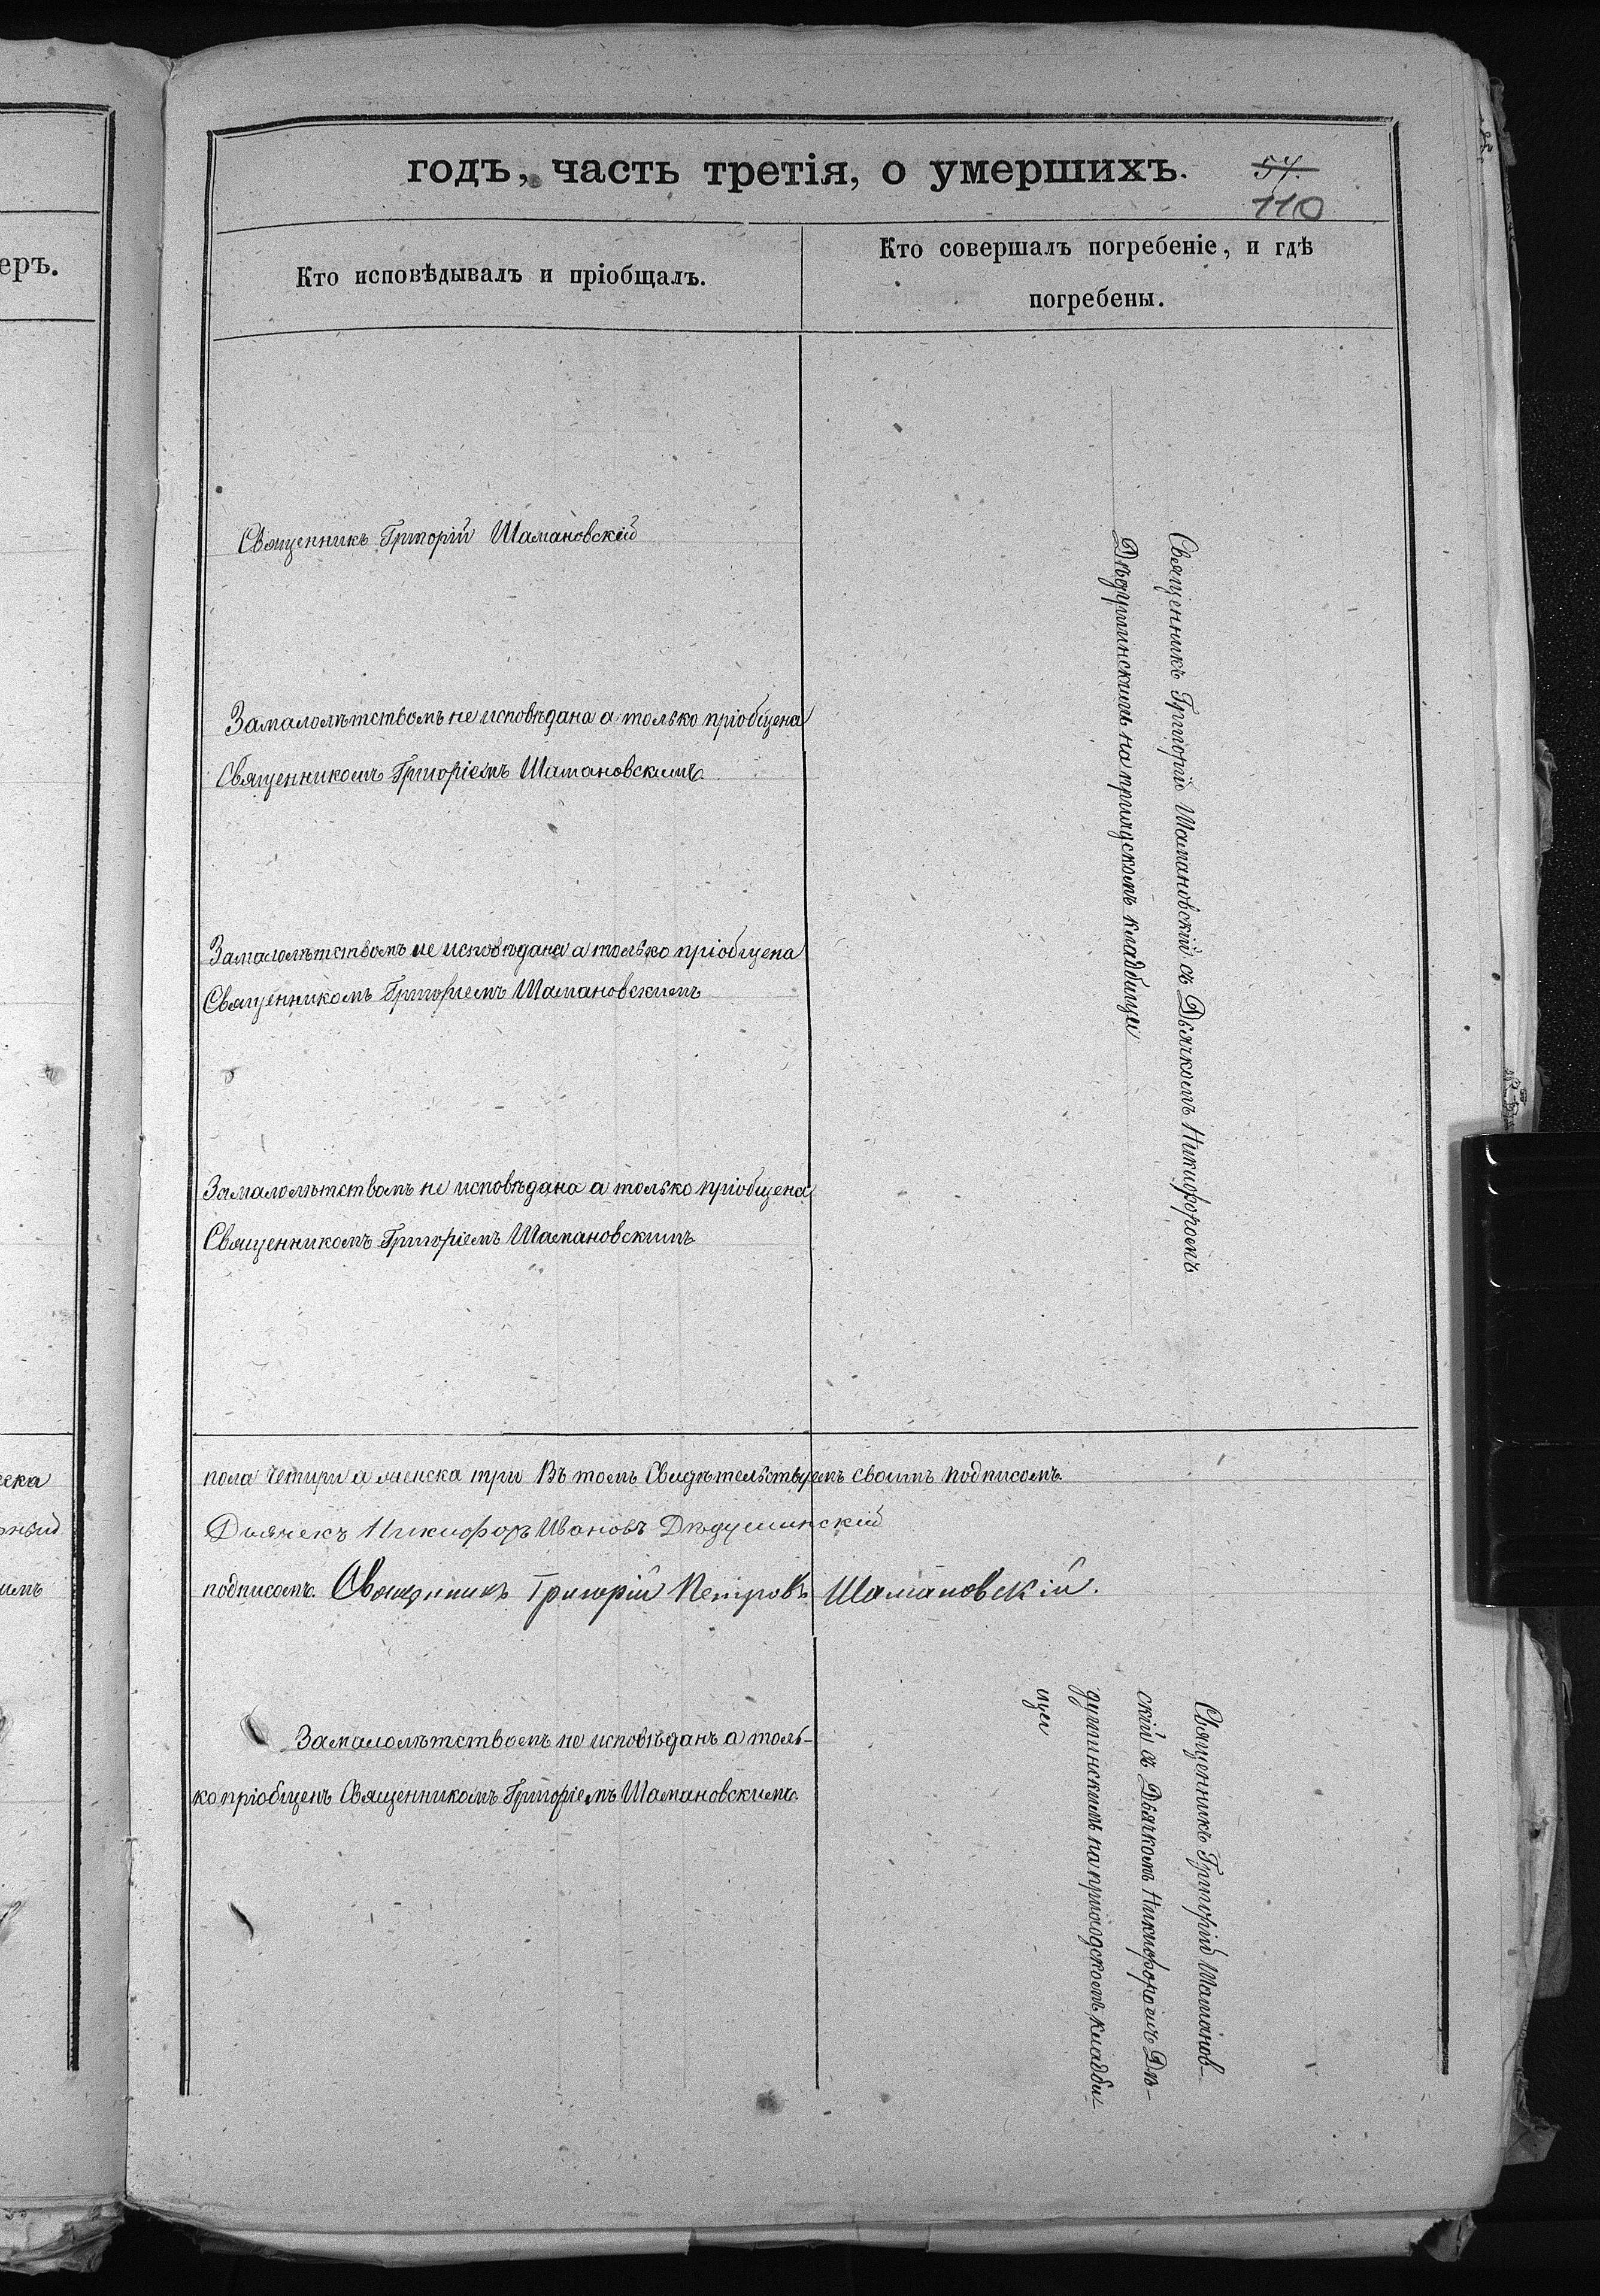 еръ.
ска
ный
имъ
годъ, часть третія, о умершихъ.
57.
110
Кто исповѣдывалъ и пріобщалъ.
Кто совершалъ погребеніе, и гдѣ
погребены.
Священникъ Григорій Шамановскій
За малолѣтствомъ не исповѣдана а только пріобщена
Священникомъ Григоріемъ Шамановскимъ
За малолѣтствомъ не исповѣдана а только пріобщена
Священникомъ Григоріемъ Шамановскимъ
За малолѣтствомъ не исповѣдана а только пріобщена
Священникомъ Григоріемъ Шамановскимъ
Священникъ Григорій Шамановскій съ Дьячкомъ Никифоромъ
Дѣдушинскимъ на приходскомъ кладбищи
пола четыри а женска три Въ томъ Свидѣтельствуемъ своимъ подписомъ
Дьячекъ Никифоръ Ивановъ Дѣдушинскій
подписомъ. Священникъ Григорій Петровъ Шамановскій.
За малолѣтствомъ не исповѣданъ а толь-
ко пріобщенъ Священникомъ Григоріемъ Шамановскимъ
Священникъ Григорій Шаманов-
скій съ Дьячкомъ Никифоромъ Дѣ-
душинскимъ на приходскомъ кладби-
щи